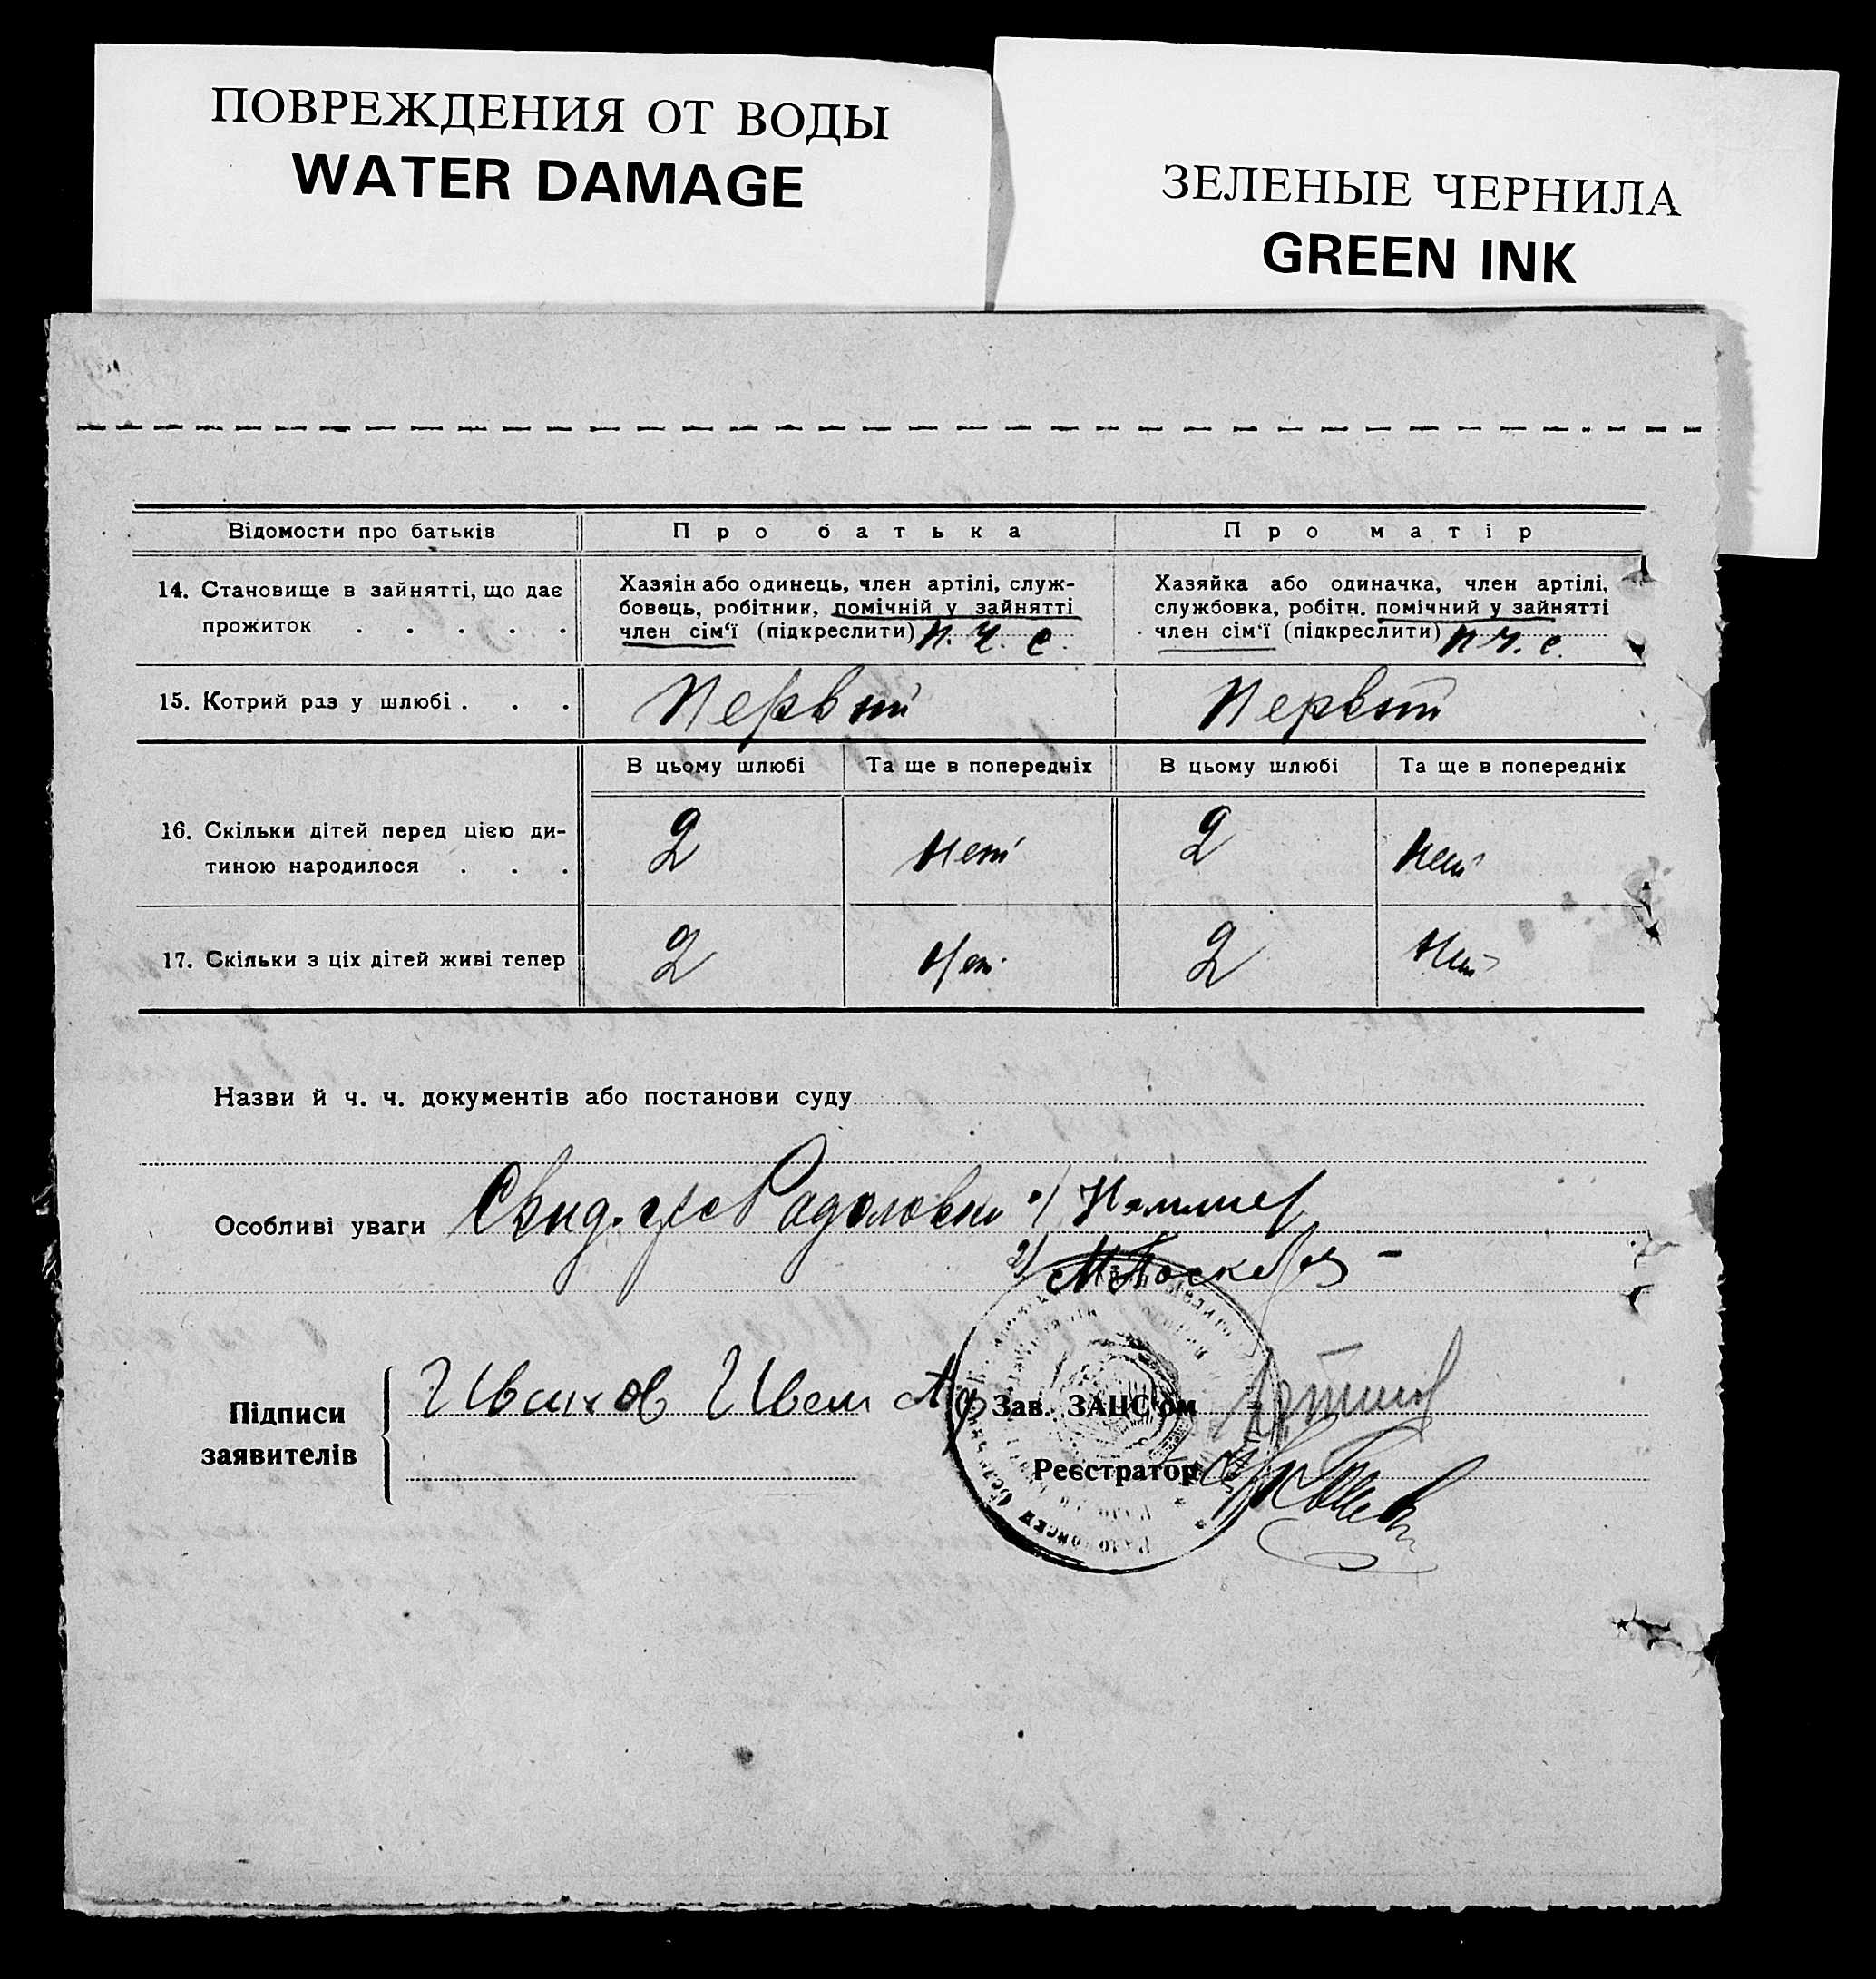 ПОВРЕЖДЕНИЯ ОТ ВОДЫ
WATER DAMAGE
ЗЕЛЕНЫЕ ЧЕРНИЛА
GREEN INK
Відомости про батьків
Про батька
Про матір
14. Становище в зайнятті, що дає
прожиток . . . . .
Хазяін або одинець, член артілі, служ-
бовець, робітник, помічній у зайнятті
член сім'ї (підкреслити) п. ч. с.
Хазяйка або одиначка, член артілі,
службовка, робітн. помічний у зайнятті
член сім'ї (підкреслити) п. ч. с.
15. Котрий раз у шлюбі . . .
Первый
Первый
В цьому шлюбі
Та ще в попередніх
В цьому шлюбі
Та ще в попередніх
16. Скільки дітей перед цією ди-
тиною народилося . . .
2
нет
2
нет
17. Скільки з ціх дітей живі тепер
2
нет
2
нет
Назви й ч. ч. документів або постанови суду
Особливі уваги
1)
2)
Підписи
заявителів
Иванов Иван
Зав. ЗАЦС'ом
Реєстратор